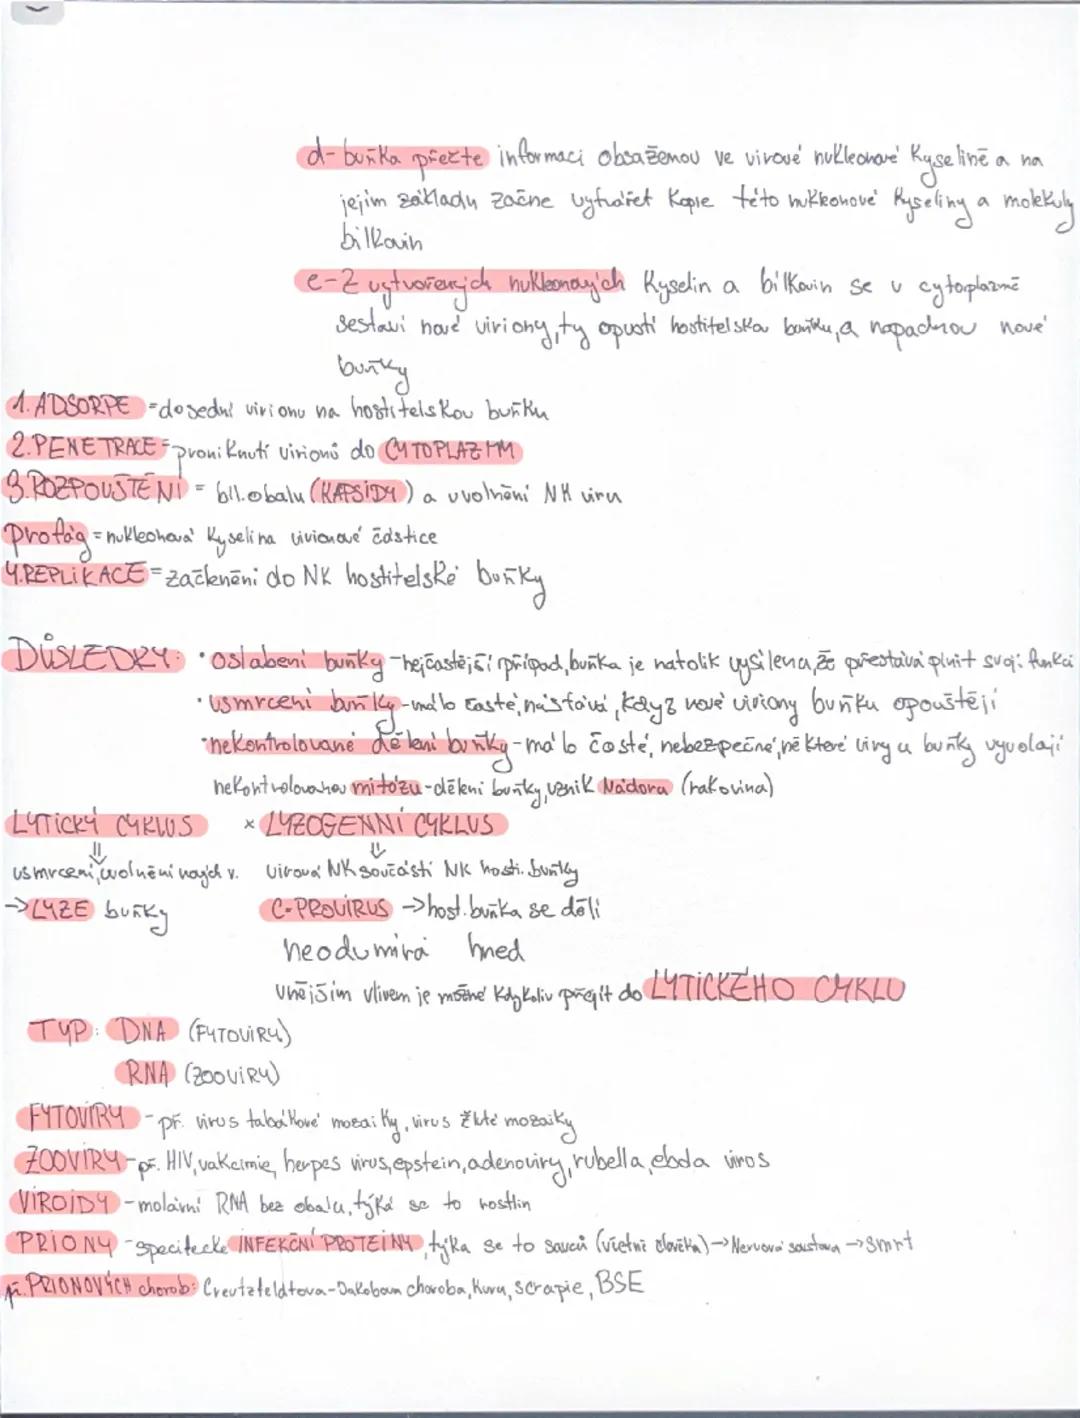 d-buňka přečte informaci obsaženou ve virové nukleonové kyselině a na
jejím základu začne vytvářet kopie této nukleonové kyseliny a molekuly
bílkovin
e-z vytvořených nukleonových kyselin a bílkovin se v cytoplazmě
sestaví nové viriony, ty opustí hostitelskou buňku, a napadnou nové
buňky
1. ADSORPE = dosední virionu na hostitelskou buňku
2. PENETRACE = proniknutí virionů do CYTOPLAZMY
3. ROZPOUŠTĚNÍ = bíl. obalu (KAPSIDY) a uvolnění NK viru
Profág = nukleonová kyselina virionové částice
4. REPLIKACE = začlenění do NK hostitelské buňky
DŮSLEDKY: • oslabení buňky - nejčastější případ, buňka je natolik vysílena, že přestává plnit svoji funkci
• usmrcení buňky - málo časté, nastává, když nové viriony buňku opouštějí
• nekontrolované dělení buňky - málo časté, nebezpečné, některé viry u buňky vyvolají
nekontrolovanou mitózu - dělení buňky, vznik Nádoru (rakovina)
LYTICKÝ CYKLUS × LYZOGENNÍ CYKLUS
⇓ ⇓
usmrcení, uvolnění nových v. virová NK součástí NK hosti. buňky
→ LYZE buňky C-PROVIRUS → host. buňka se dělí
neodumírá hned
vnějším vlivem je možné kdykoliv přejít do LYTICKÉHO CYKLU
TYP: DNA (FYTOVIRY)
RNA (ZOOVIRY)
FYTOVIRY - př. virus tabákové mozaiky, virus žluté mozaiky
ZOOVIRY - př. HIV, vakcinie, herpes virus, epstein, adenoviry, rubella, ebola viros
VIROIDY - molární RNA bez obalu, týká se to rostlin
PRIONY - specitecke INFEKČNÍ PROTEINY, týka se to savců (včetně člověka) → Nervová soustava → smrt
př. PRIONOVÝCH chorob: Creutzfeldtova-Jakobova choroba, Kuru, scrapie, BSE